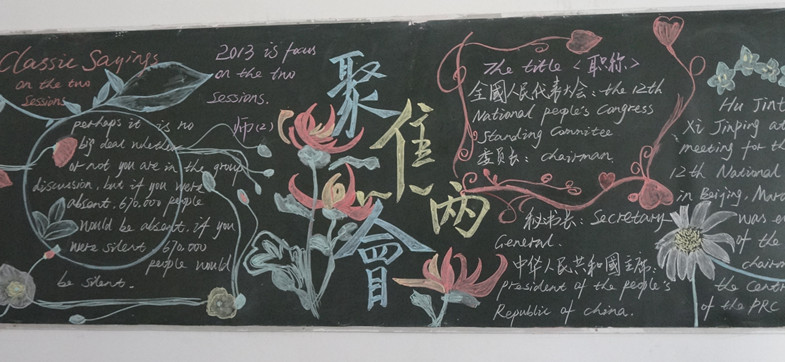 Classic Sayings
on the two
sessions
perhaps it is no
big deal whether
or not you are in the group
discussion, but if you were
absent. 670.000 people
would be absent. if you
were silent. 670.000
people would
be silent.
2013 is focus
on the two
sessions.
师(2)
聚
住
两
会
The title <职称>
全國人民代表大会: the 12th
National people's Congress
Standing Commitee
委员长: chairman
秘书长: Secretary
General.
中华人民共和國主席:
president of the people's
Republic of china.
Hu Jint
Xi Jinping at
meeting for th
12th National
in Beijing. Marc
was e
of the
chairm
the Centr
of the PRC